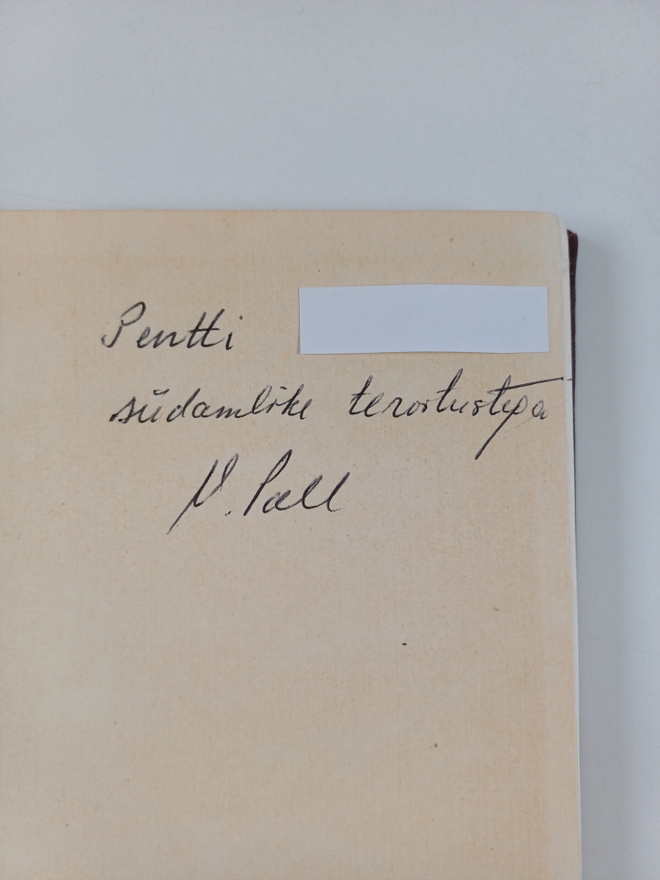 Pentti
südamlike tervitustega
V. Pall